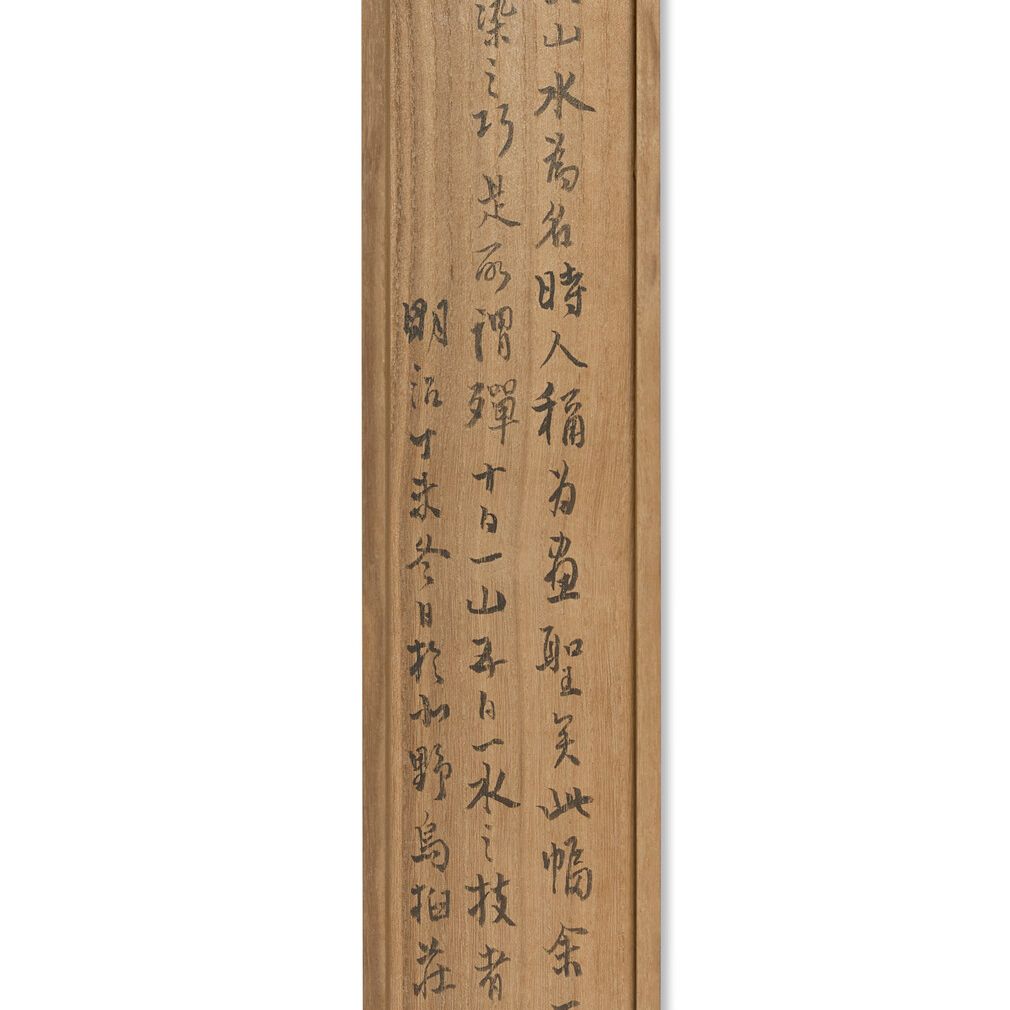 山水為名時人稱为畫聖矣此幅余
染之巧是所謂殫十日一山五日一水之技者
明治丁未冬日於北野烏柏莊